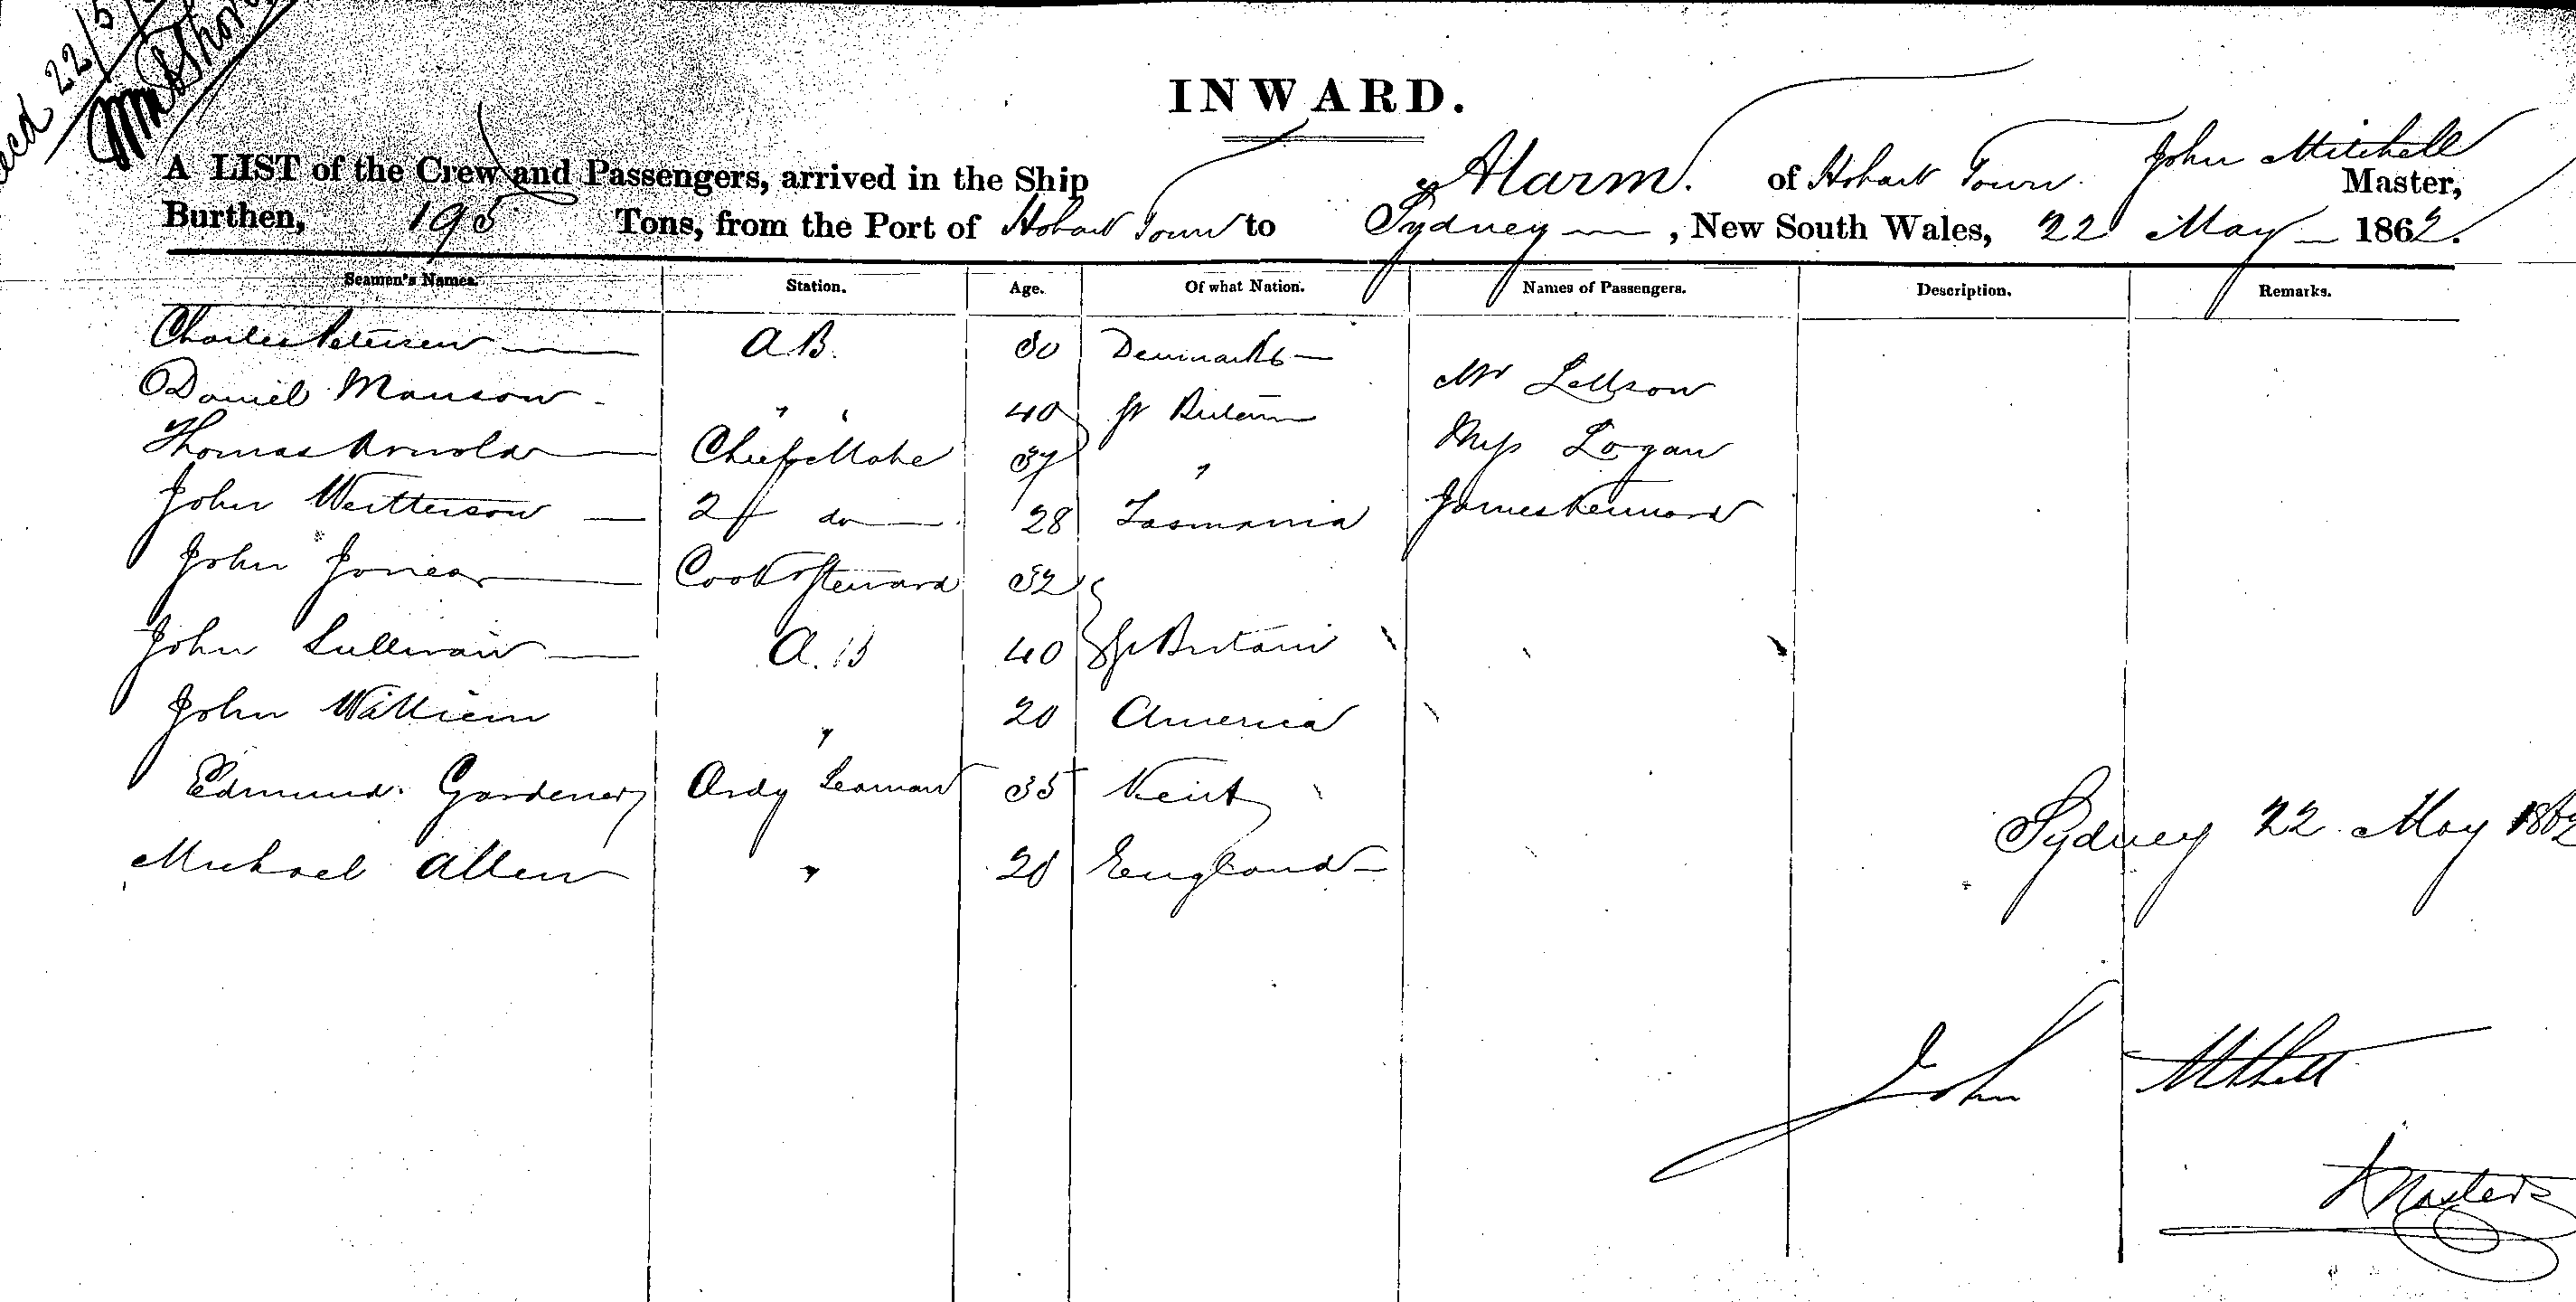 recd 22/5/
INWARD.
A LIST of the Crew and Passengers, arrived in the Ship Alarm. of Hobart Town. John Mitchell Master,
Burthen, 195 Tons, from the Port of Hobart Town to Sydney — , New South Wales, 22 May — 1862.
Seamen's Names. Station. Age. Of what Nation. Names of Passengers. Description. Remarks.
Charles Petersen — A.B. 30 Denmark —
Daniel Manson - " " 40 Gt Britain Mr
Thomas Arnold — Chief Mate 37 " Miss Logan
John — 2d do — 28 Tasmania James Kennard
John Jones — Cook & Steward 32
John Sullivan — A.B 40 Gt Britain
John William " 20 America
Edmund Gardener Ordy Seaman 35 Kent
Michael Allen " 20 England —
Sydney 22 May 1862
John Mitchell
Master